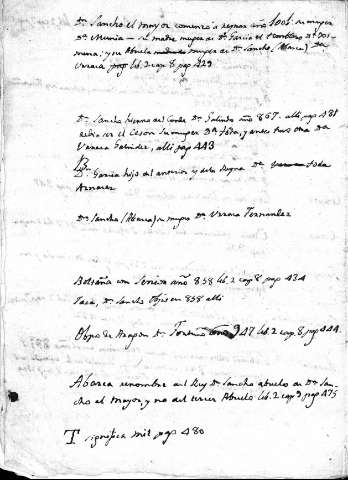 Dn. Sancho el mayor comenzó a reynar año 1001: su muger
Dª Munia — su madre muger de Dn. Garcia el tembloso Dª Xi-
mena; y su Abuela muger de Dn. Sancho (Abarca) Dª
Urraca pag lib. 2 cap 8 pag 429
Dn. Sancho hierno del Conde Dn. Galindo año 867. alli, pag 438
Cesson su muger Dª toda, y antes tuvo una Dª
Urraca alli pag 443
Dn. Garcia hijo del anterior y de la Reyna Dª toda
Aznarez
Dn. Sancha (Abarca) su muger Dª Urraca Fernandez
Boltaña con año 858 lib. 2 cap 8 pag 434
Jaca, Dn. Sancho Obispo en 858 alli
Obpo de Aragon Dn. Fortuño 947 lib. 2 cap 8 pag 444.
Abarca renombre del Rey Dn. Sancho abuelo de Dn. San-
cho el Mayor, y no del tercer Abuelo lib. 2 cap 9 pag 475
T significa mil pag 480